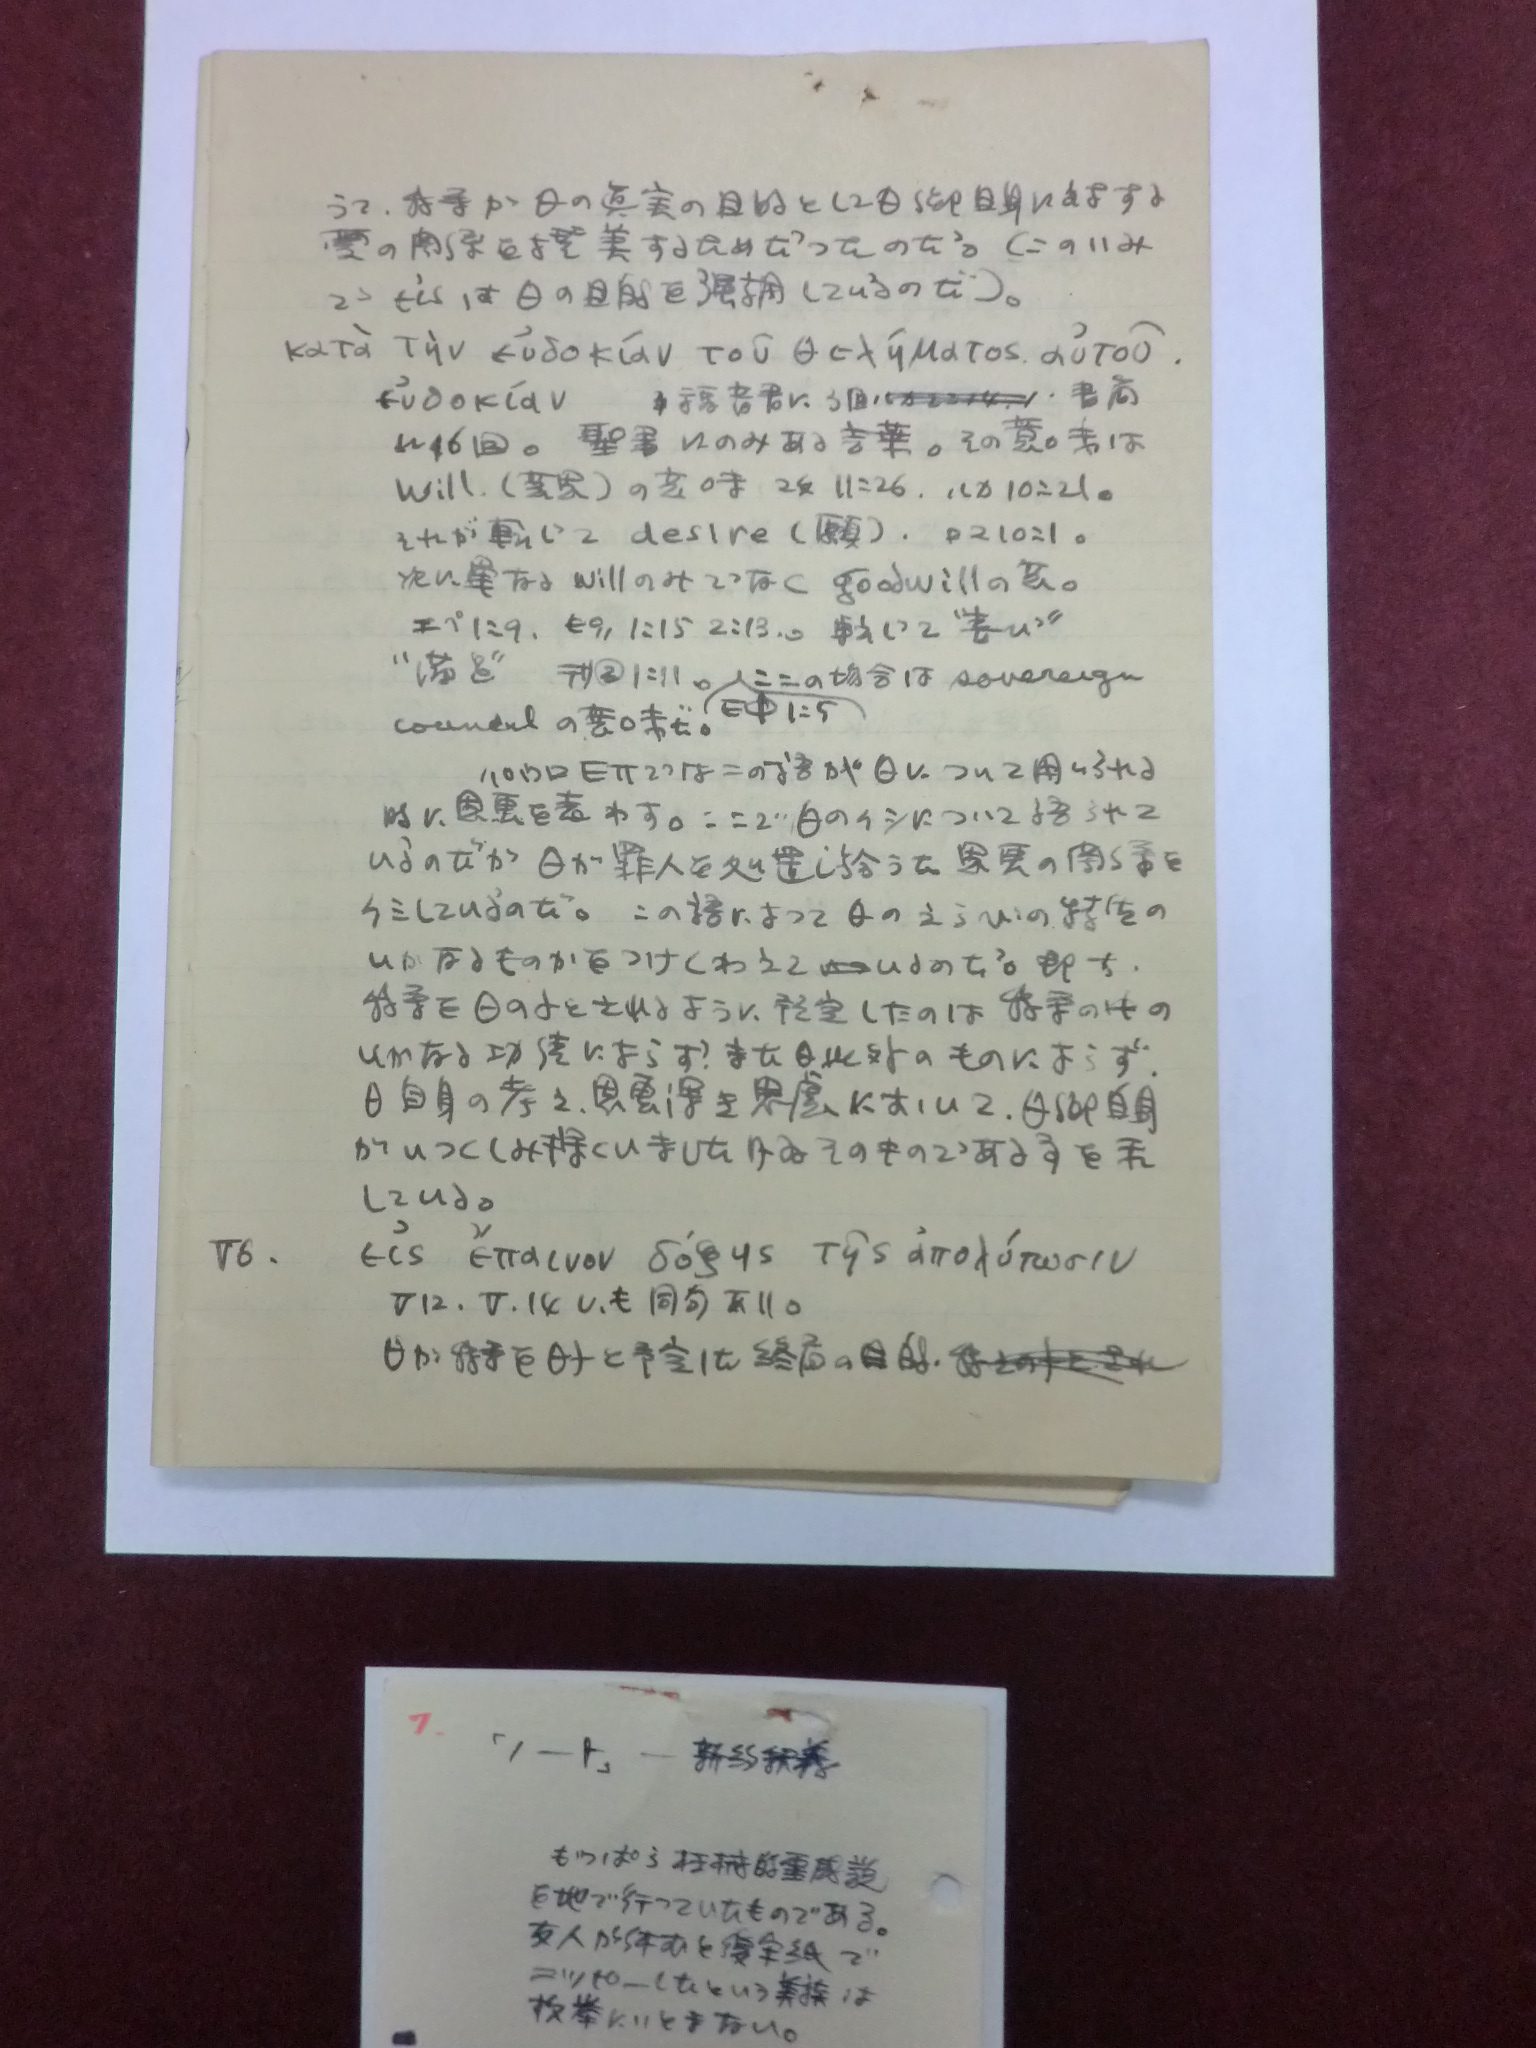 うて、我等が θの真実の目的として θ御自身に対する
愛の関係を讃美するためだったのだ。(このいみ
で εἰς は θの目的を強調しているのだ)。
κατὰ τὴν εὐδοκίαν τοῦ θελήματος αὐτοῦ.
εὐδοκίαν 福音書に 3回 書簡
に 6回。聖書にのみある言葉。その意味は
will.(意思)の意味 マタ 11:26. ルカ 10:21。
それが転じて desire (願). ロマ 10:1。
次に単なる willのみでなく goodwillの意。
エペ 1:9, 1:15 2:13.。転じて "喜び"
"満足" テサ② 1:11。ここの場合は sovereign
counsel の意味だ。 エペ 1:5
パウロ Eπでは この語が θについて用いられる
時に恩恵を表わす。ここで θのイシについて語られて
いるのだが θが罪人を処置し給うた 恩恵の関係を
イミしているのだ。この語によって θのえらびの特性の
いかなるものかをつけくわえて いるのだ。即ち.
我等を θの子とされるように、予定したのは 我等の
いかなる功績によらず、また θ以外のものによらず.
θ自身の考え、恩恵深き思慮において、θ御自身
がいつくしみ そのものである事を示
している。
V6. εἰς ἔπαινον δόξης τῆς ἀπολύτωσιν
V12. V.14 にも同句あり。
θが我等を θ子と予定した 終局の目的.
7.
「ノート」 — 新約釈義
もっぱら 機械的霊感説
を地で行っていたものである。
友人が休むと複写紙で
コッピーしたという 美談は
枚挙にいとまない。